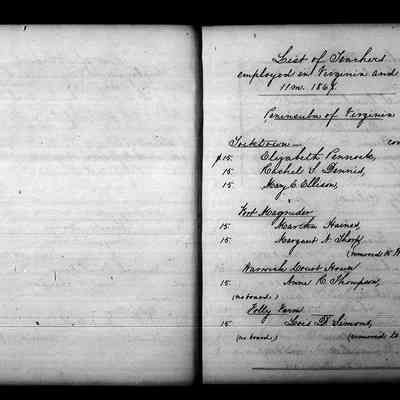 List of Teachers
employed in Virginia and
11 m. 1869.
Peninsula of Virginia
Yorktown
15 Elizabeth Pennock,
15 Rachel S. Dennis,
15 Mary C. Ellison,
Fort Magruder
15 Martha Haines,
15 Margaret N. Thorp
(removed to W
Warwick Court House
15 Anne R. Thompson,
(no board.)
Folly Farm
15 Lois D. Simons,
(no board.) (removed to